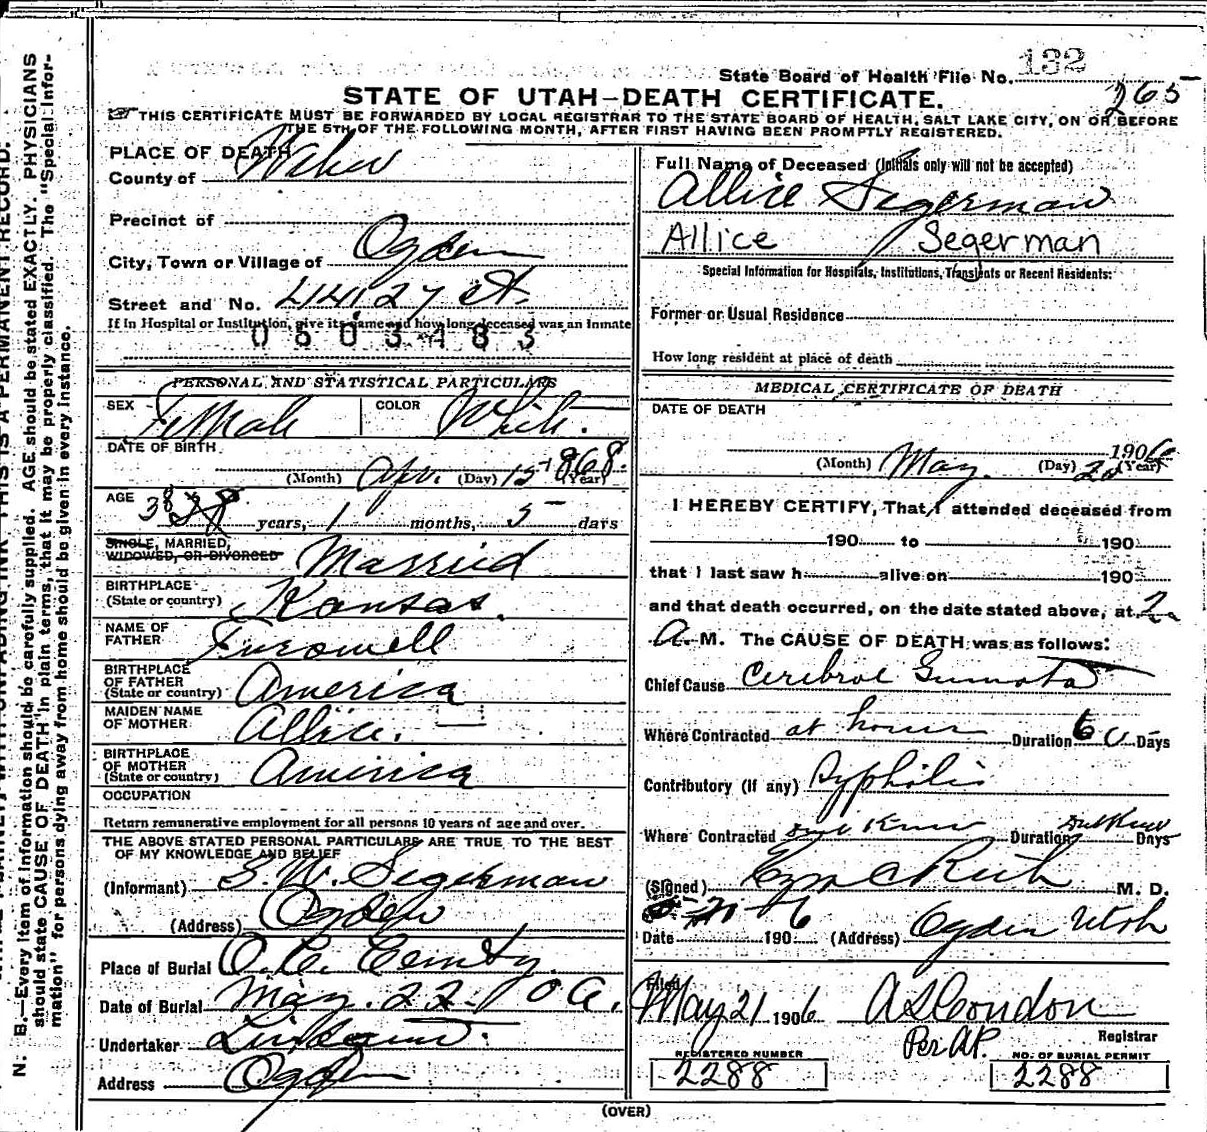 State Board of Health File No. 132
265
STATE OF UTAH—DEATH CERTIFICATE.
THIS CERTIFICATE MUST BE FORWARDED BY LOCAL REGISTRAR TO THE STATE BOARD OF HEALTH, SALT LAKE CITY, ON OR BEFORE
THE 5TH OF THE FOLLOWING MONTH, AFTER FIRST HAVING BEEN PROMPTLY REGISTERED.
PLACE OF DEATH
County of Weber
Precinct of
City, Town or Village of Ogden
Street and No. 441 27 St.
If in Hospital or Institution, give its name and how long deceased was an Inmate
0503483
PERSONAL AND STATISTICAL PARTICULARS
SEX Female COLOR White.
DATE OF BIRTH
(Month) Apr. (Day) 15 1868 (Year)
AGE 38 years, 1 months, 5 days
SINGLE, MARRIED,
WIDOWED, OR DIVORCED Married
BIRTHPLACE
(State or country) Kansas.
NAME OF
FATHER
BIRTHPLACE
OF FATHER
(State or country) America
MAIDEN NAME
OF MOTHER Allice.
BIRTHPLACE
OF MOTHER
(State or country) America
OCCUPATION
Return remunerative employment for all persons 10 years of age and over.
THE ABOVE STATED PERSONAL PARTICULARS ARE TRUE TO THE BEST
OF MY KNOWLEDGE AND BELIEF
(Informant) S. W. Segerman
(Address) Ogden
Place of Burial O. C.
Date of Burial May. 22
Undertaker
Address Ogden
Full Name of Deceased (Initials only will not be accepted)
Allice Segerman
Allice Segerman
Special Information for Hospitals, Institutions, Transients or Recent Residents:
Former or Usual Residence
How long resident at place of death
MEDICAL CERTIFICATE OF DEATH
DATE OF DEATH
1906
(Month) May. (Day) 20 (Year)
I HEREBY CERTIFY, That I attended deceased from
190 to 190
that I last saw h alive on 190
and that death occurred, on the date stated above, at 2
A. M. The CAUSE OF DEATH was as follows:
Chief Cause Cerebral Gumata
Where Contracted at home Duration 60 Days
Contributory (if any) Syphilis
Where Contracted Dont Know Duration Dont Know Days
(Signed) M. D.
5-20-06
Date 190 (Address) Ogden Utah
Filed
May 21 1906 A S Condon
Per A.P. Registrar
REGISTERED NUMBER NO. OF BURIAL PERMIT
2288 2288
(OVER)
N. B.—Every item of information should be carefully supplied. AGE should be stated EXACTLY. PHYSICIANS
should state CAUSE OF DEATH in plain terms, that it may be properly classified. The "Special Infor-
mation" for persons dying away from home should be given in every instance.